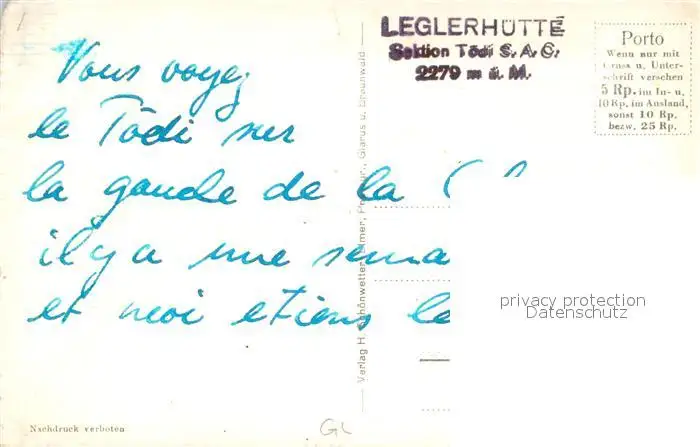 LEGLERHÜTTE
Sektion Tödi S. A. C.
2279 m ü. M.
Porto
Wenn nur mit
Gruss u. Unter-
schrift versehen
5 Rp. im In- u.
10 Rp. im Ausland,
sonst 10 Rp.
bezw. 25 Rp.
Vous voyez
le Tödi sur
la gauche de la
il y a une sema
et moi etions le
Verlag H. Schönwetter-Elmer, Glarus u. Braunwald
privacy protection
Datenschutz
Nachdruck verboten
GL